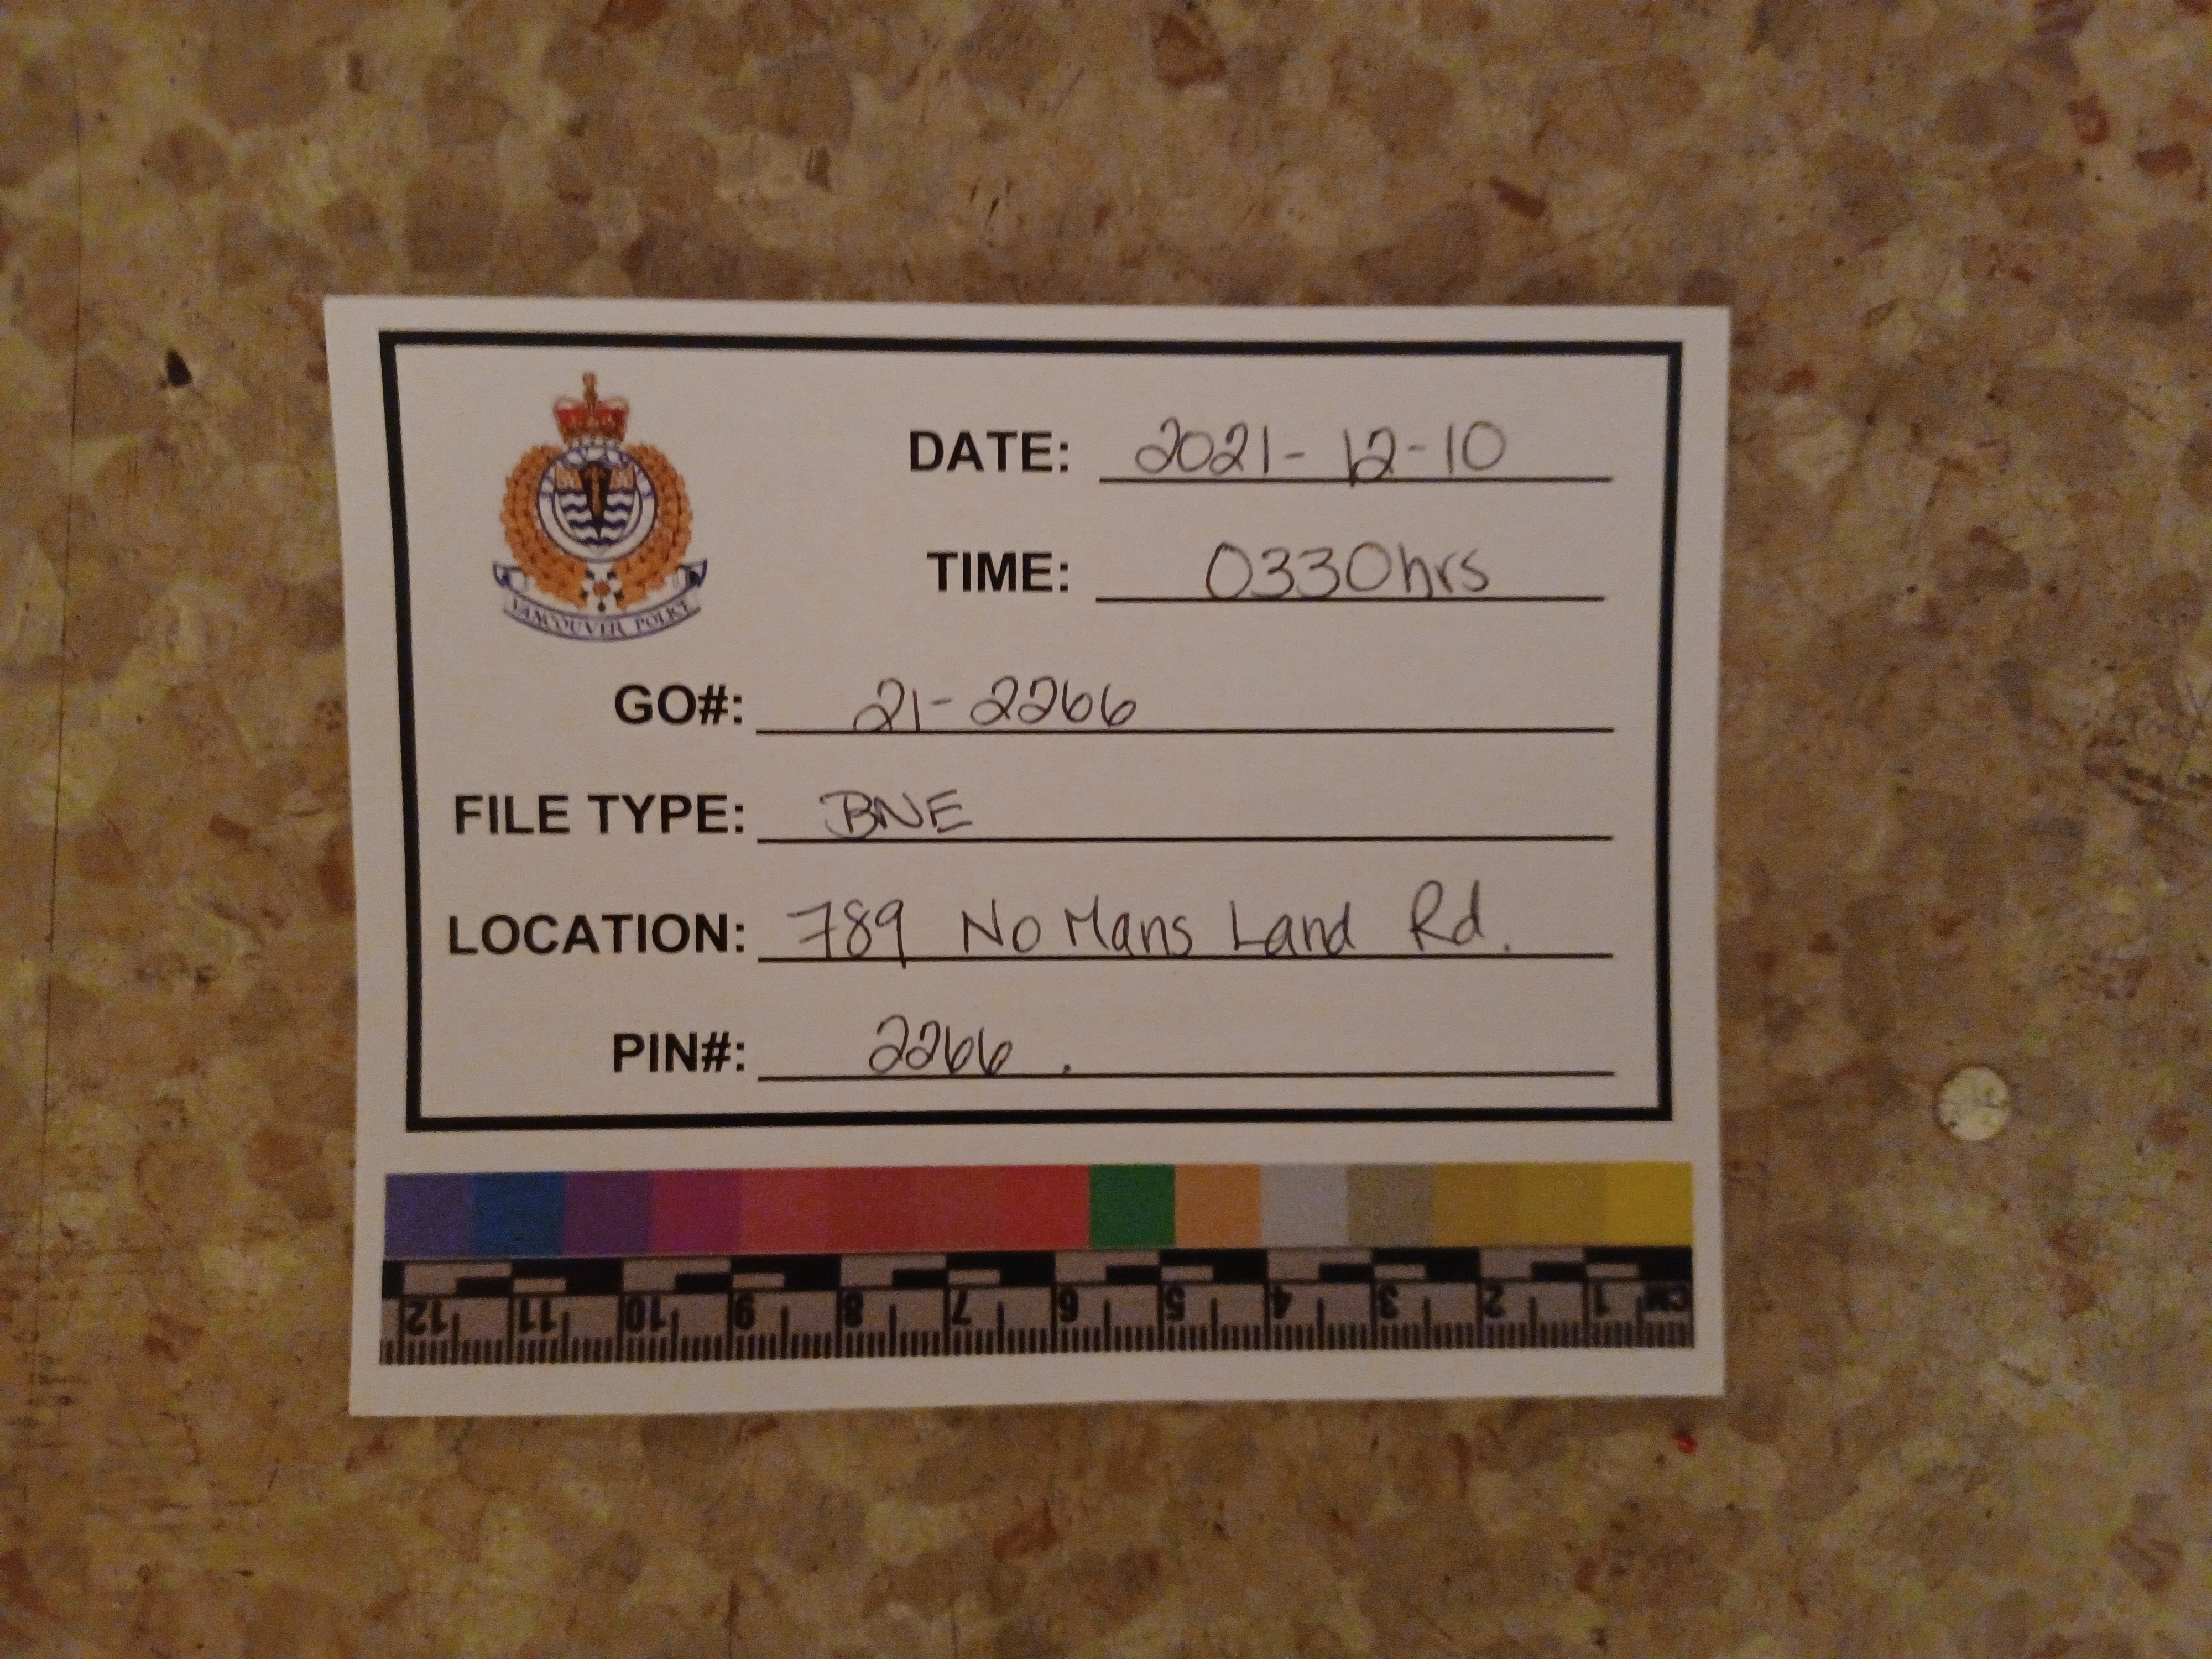 VANCOUVER POLICE
DATE: 2021-12-10
TIME: 0330hrs
GO#: 21-2266
FILE TYPE: BNE
LOCATION: 789 No Mans Land Rd.
PIN#: 2266.
12 11 10 9 8 7 6 5 4 3 2 1 CM